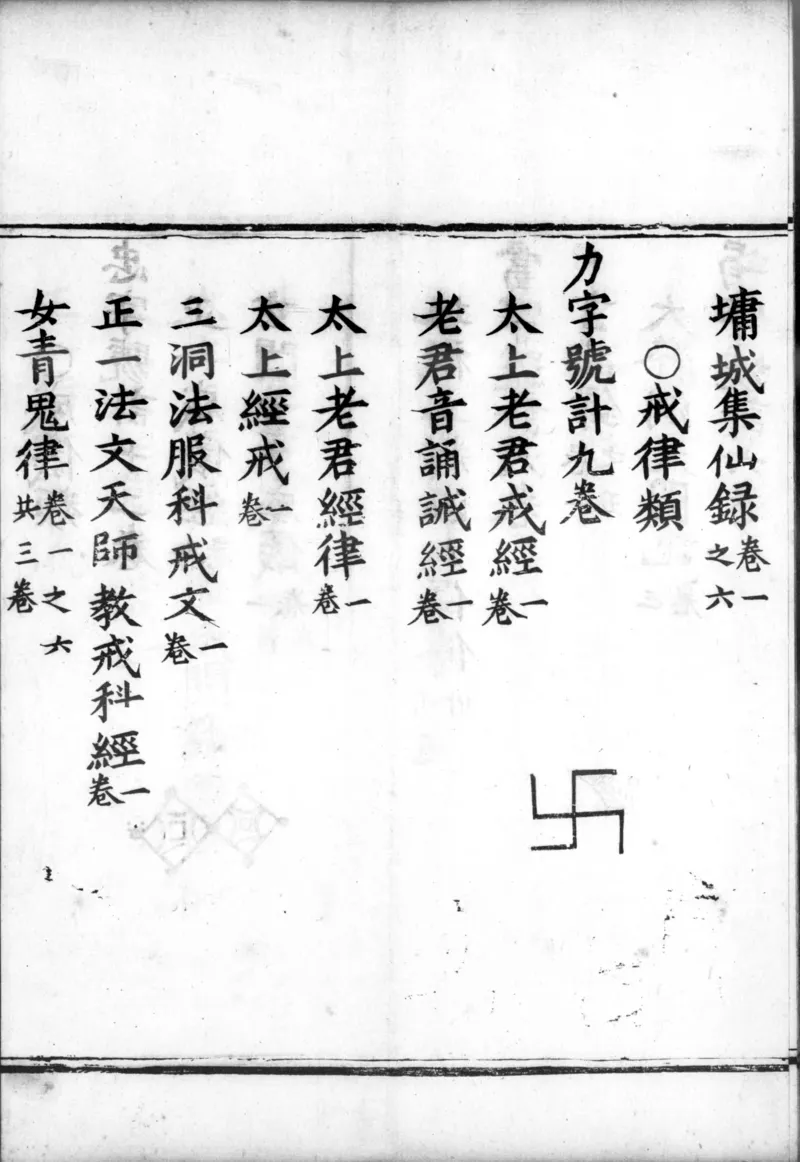 墉城集仙録卷一之六
○戒律類
力字號計九卷
太上老君戒經一卷
老君音誦誡經一卷
卍
太上老君經律一卷
太上經戒一卷
三洞法服科戒文一卷
正一法文天師教戒科經一卷
女青鬼律卷一之六共三卷